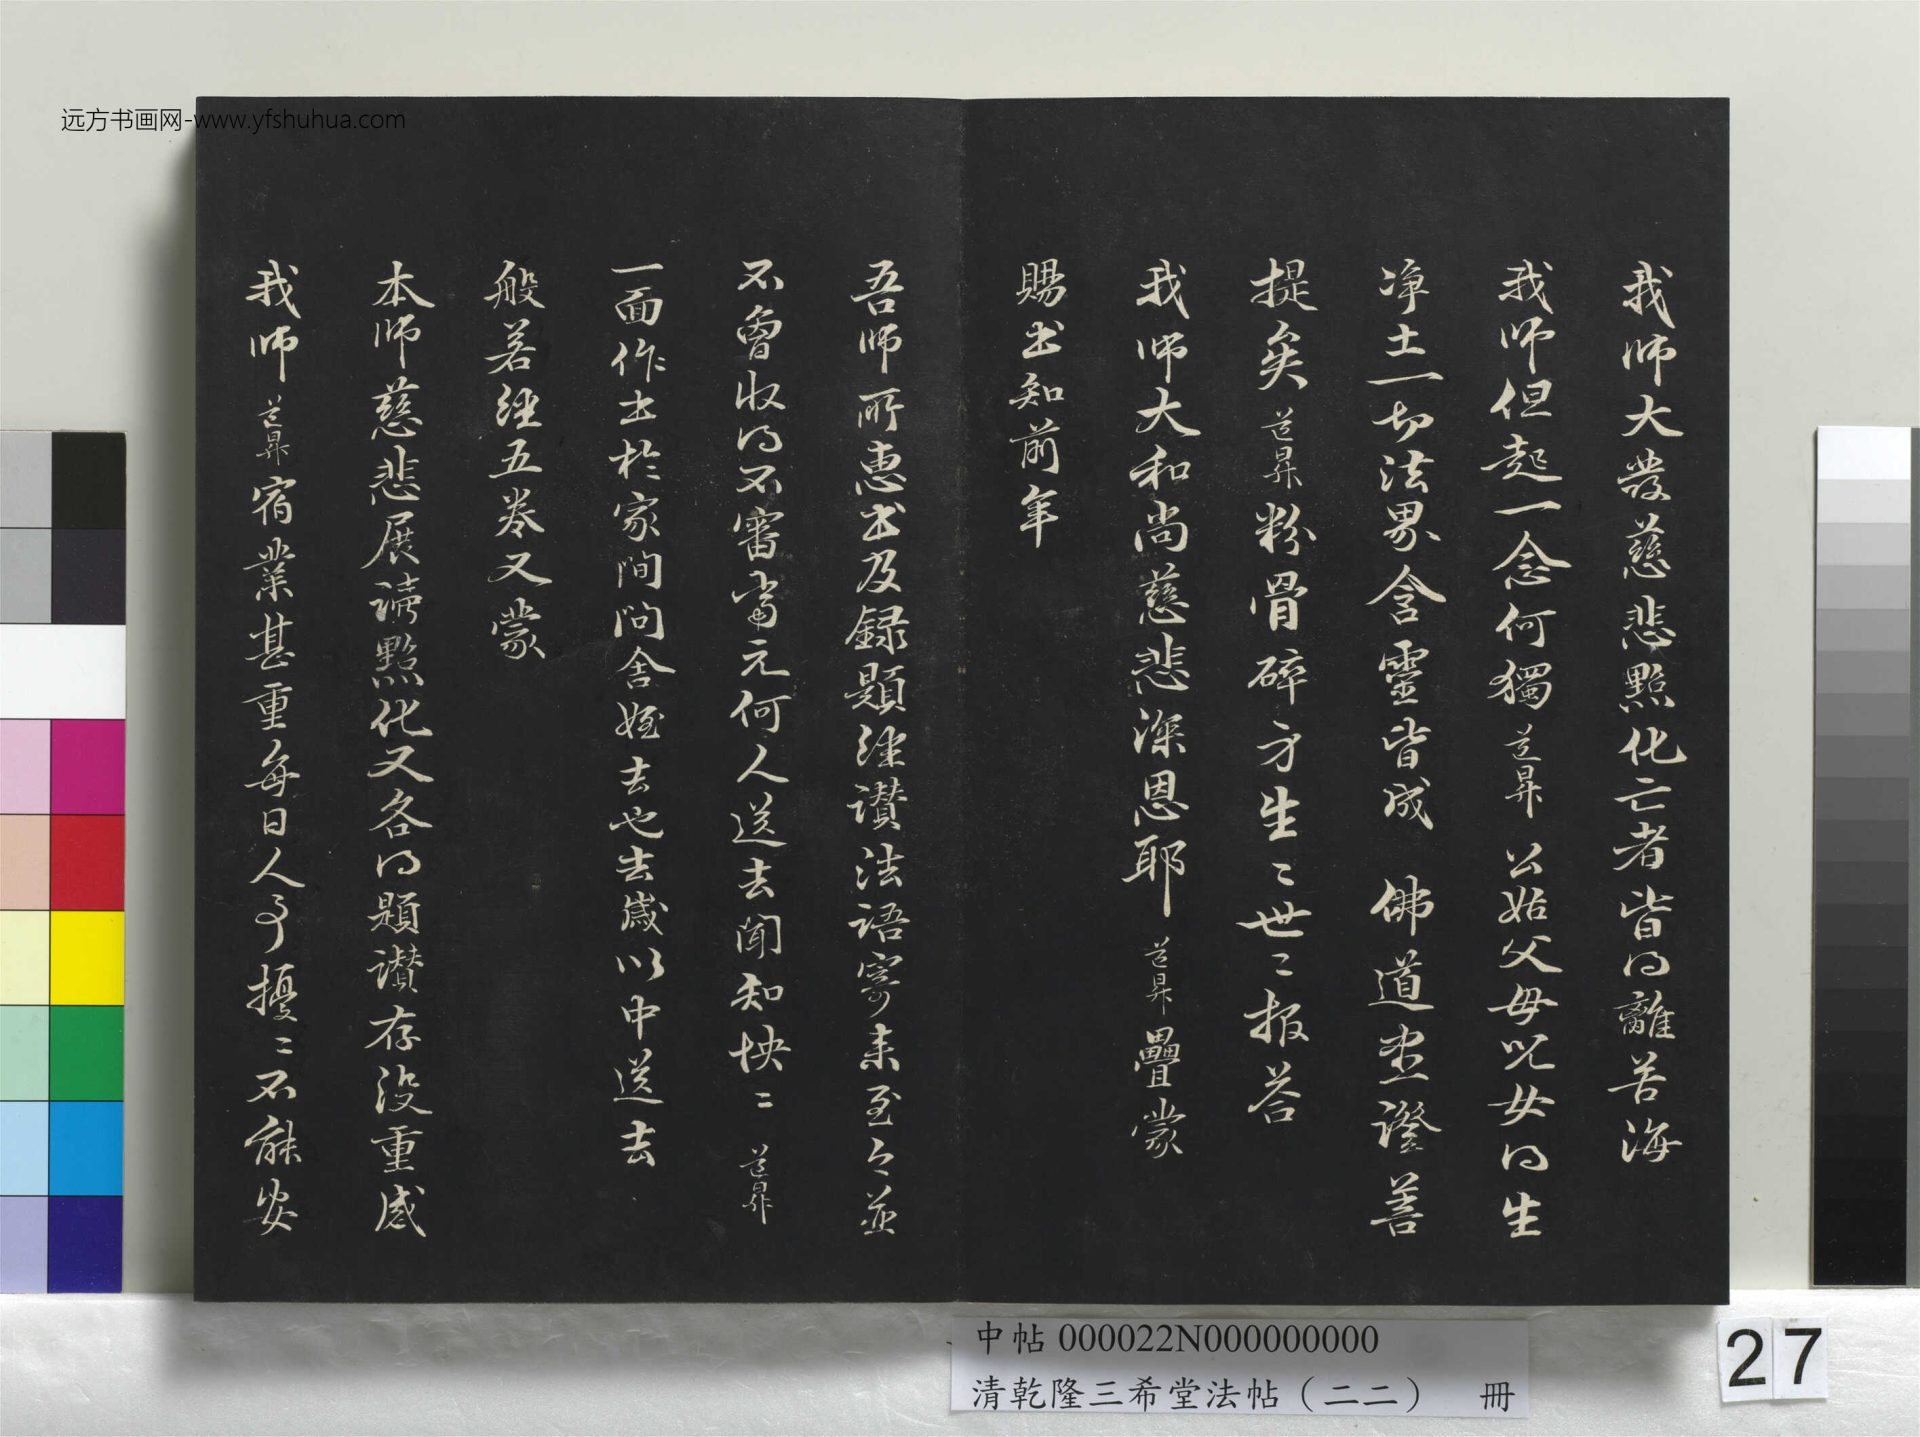 远方书画网-www.yfshuhua.com
我师大發慈悲點化亡者皆得離苦海
我师但起一念何獨道昇公姑父母児女得生
净土一切法界含靈皆成 佛道盡證菩
提矣道昇粉骨碎身生〻世〻报荅
我师大和尚慈悲深恩耶道昇疊蒙
賜書知前年
吾师所惠书及録題经讚法语寄来至今並
不曾收得不審當元何人送去闻知怏〻道昇
一面作书於家间问舍姪去也去歲以中送去
般若经五卷又蒙
本师慈悲展讀點化又各得題讚存没重感
我师道昇宿業甚重每日人事擾〻不能安
中帖 000022N000000000
清乾隆三希堂法帖（二二） 冊
27